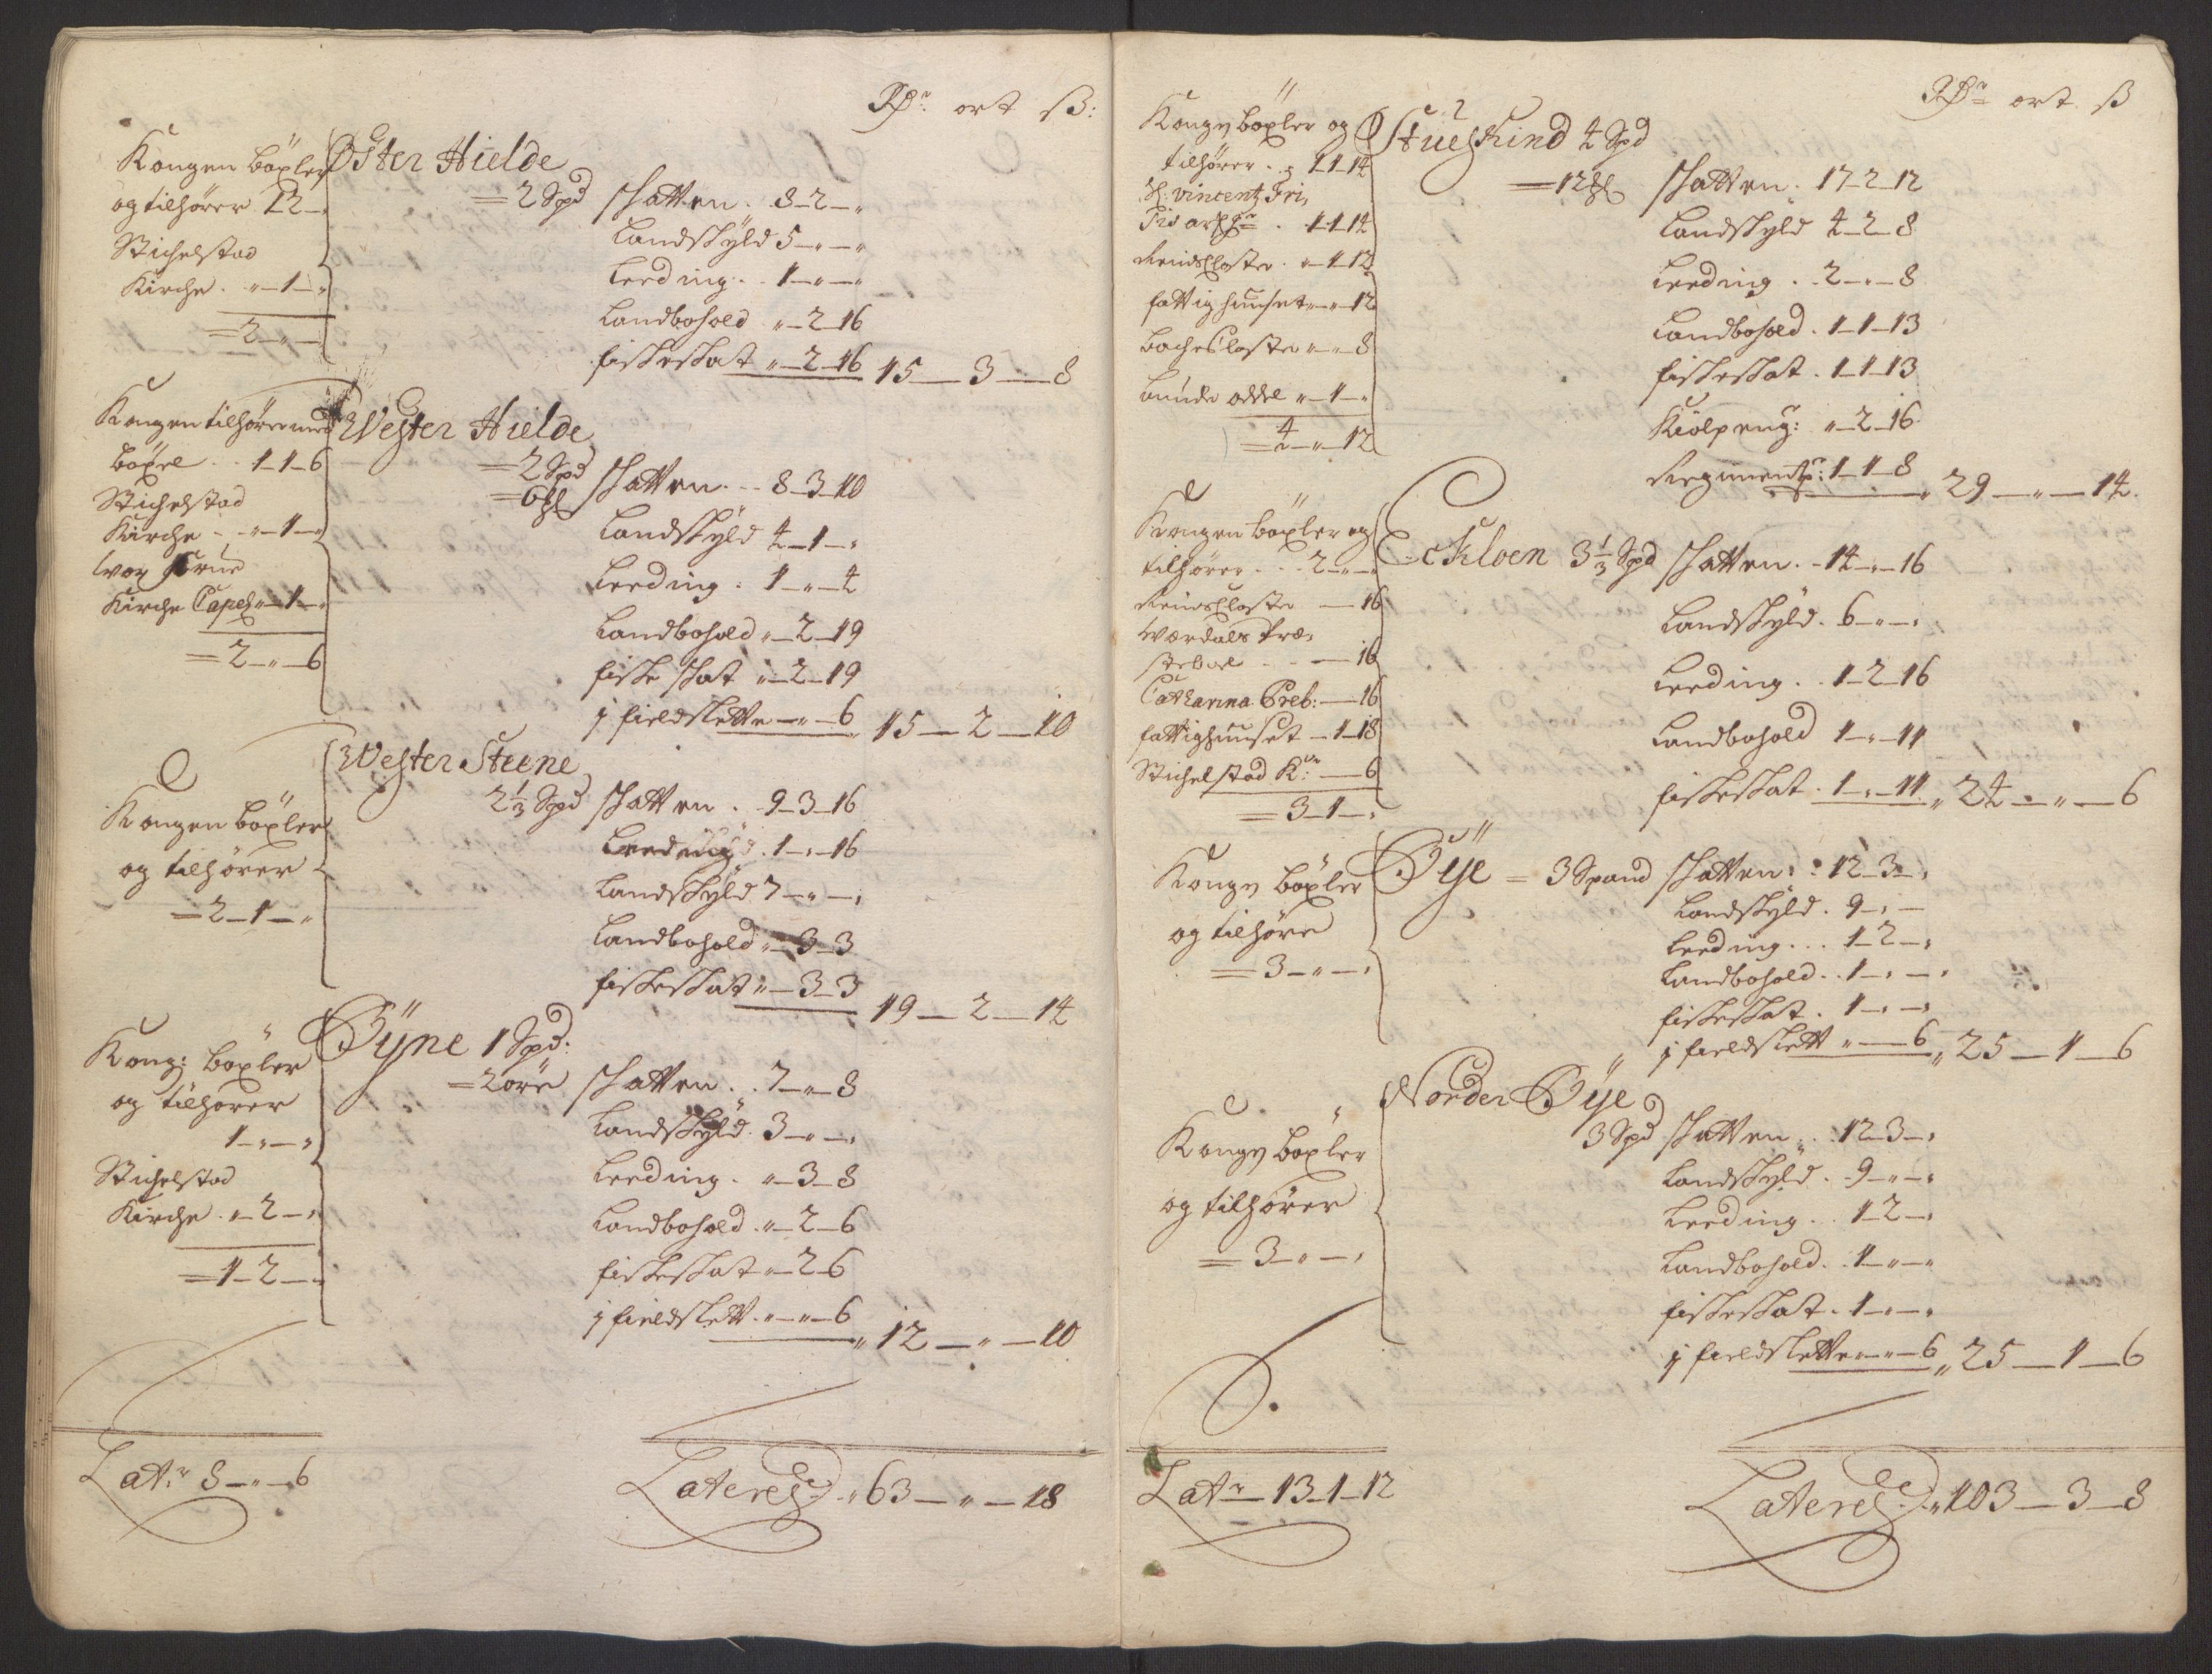 Rdr ort ß:
Kongen böxler
og tilhörer 1-2-"
Stichelstad
Kirche . "-1-"
=2-"-"
Øster Hielde
=2 Spd
Schatten . 8-2-"
Landskÿld 5-"-"
Leeding . . 1-"-"
Landbohold "-2-16
fiskeskat "-2-16 15-3-8
Kongen tilhörer med
böxel . . 1-1-6
Stichelstad
Kirche . "-1-"
Vor frue
Kirche Capel "-1-"
=2-"-6
Wester Hielde
=2 Spd
=6
Schatten . . 8-3-10
Landskÿld 4-1-"
Leeding . 1-"-4
Landbohold "-2-19
fiske skat "-2-19
j fieldslette "-"-6 15-2-10
Kongen böxler
og tilhörer
=2-1-"
Wester Steene
2 1/3 Spd
Schatten . 9-3-16
Leeding . 1-"-16
Landskÿld 7-"-"
Landbohold "-3-3
fiskeskat "-3-3
19-2-14
Kong: böxler
og tilhörer
1-"-"
Stichelstad
Kirche . "-2-"
=1-2-"
Bÿne 1 Spd:
=2 öre
Schatten . . 7-"-8
Landskÿld . 3-"-"
Leeding . "-3-8
Landbohold . "-2-6
fiskeskat "-2-6
j fieldslett . "-"-6
"12-"-10
Latr 8-"-6
Lateres "63-"-18
Rdr ort ß
Kongn böxler og
tilhörer . . 1-1-14
Sl. Vincentz Fri,
. 1-1-14
Reinscloster . "-1-12
fattighuuset "-"-12
Bachecloster "-"-8
bunde oddel "-1-"
=4-"-12
Stueskind 4 Spd
=12
Schatten . 17-2-12
Landskÿld 4-2-8
Leeding . . 2-"-8
Landbohold . 1-1-13
fiskeskat . 1-1-13
Kiölpeng: "-2-16
Regimentsp: 1-1-8
"29-"-14.
Kongen böxler og
tilhörer . . . 2-"-"
Reinscloster -16
Værdals Præ-
stebol . . -16
Catharina Preb: -16
fattighuuset -1-18
Stichelstad K: -6
=3-1-"
Eckloen 3 1/3 Spd
Schatten . - 14-"-16
Landskÿld . 6-"-"
Leeding . . 1-2-16
Landbohold 1-"-11
fiskeskat . 1-"-11 "24-"-6
Kongn böxler
og tilhöre
=3-"-"
Bÿe = 3 Spand
Schatten : 12-3-"
Landskÿld . 9-"-
Leeding . . . 1-2-"
Landbohold . . 1-"-"
fiskeskat . 1-"-"
j fieldslett "-6 "25-1-6
Kongn böxler
og tilhörer
=3-"-"
Norder Bÿe
3 Spd
Schatten . . 12-3-"
Landskÿld . . 9-"-"
Leeding . . 1-2-"
Landbohold . 1-"-"
fiskeskat . 1-"-"
j fieldslette "-"-6 "25-1-6
Latr 13-1-12
Lateres "103-3-8